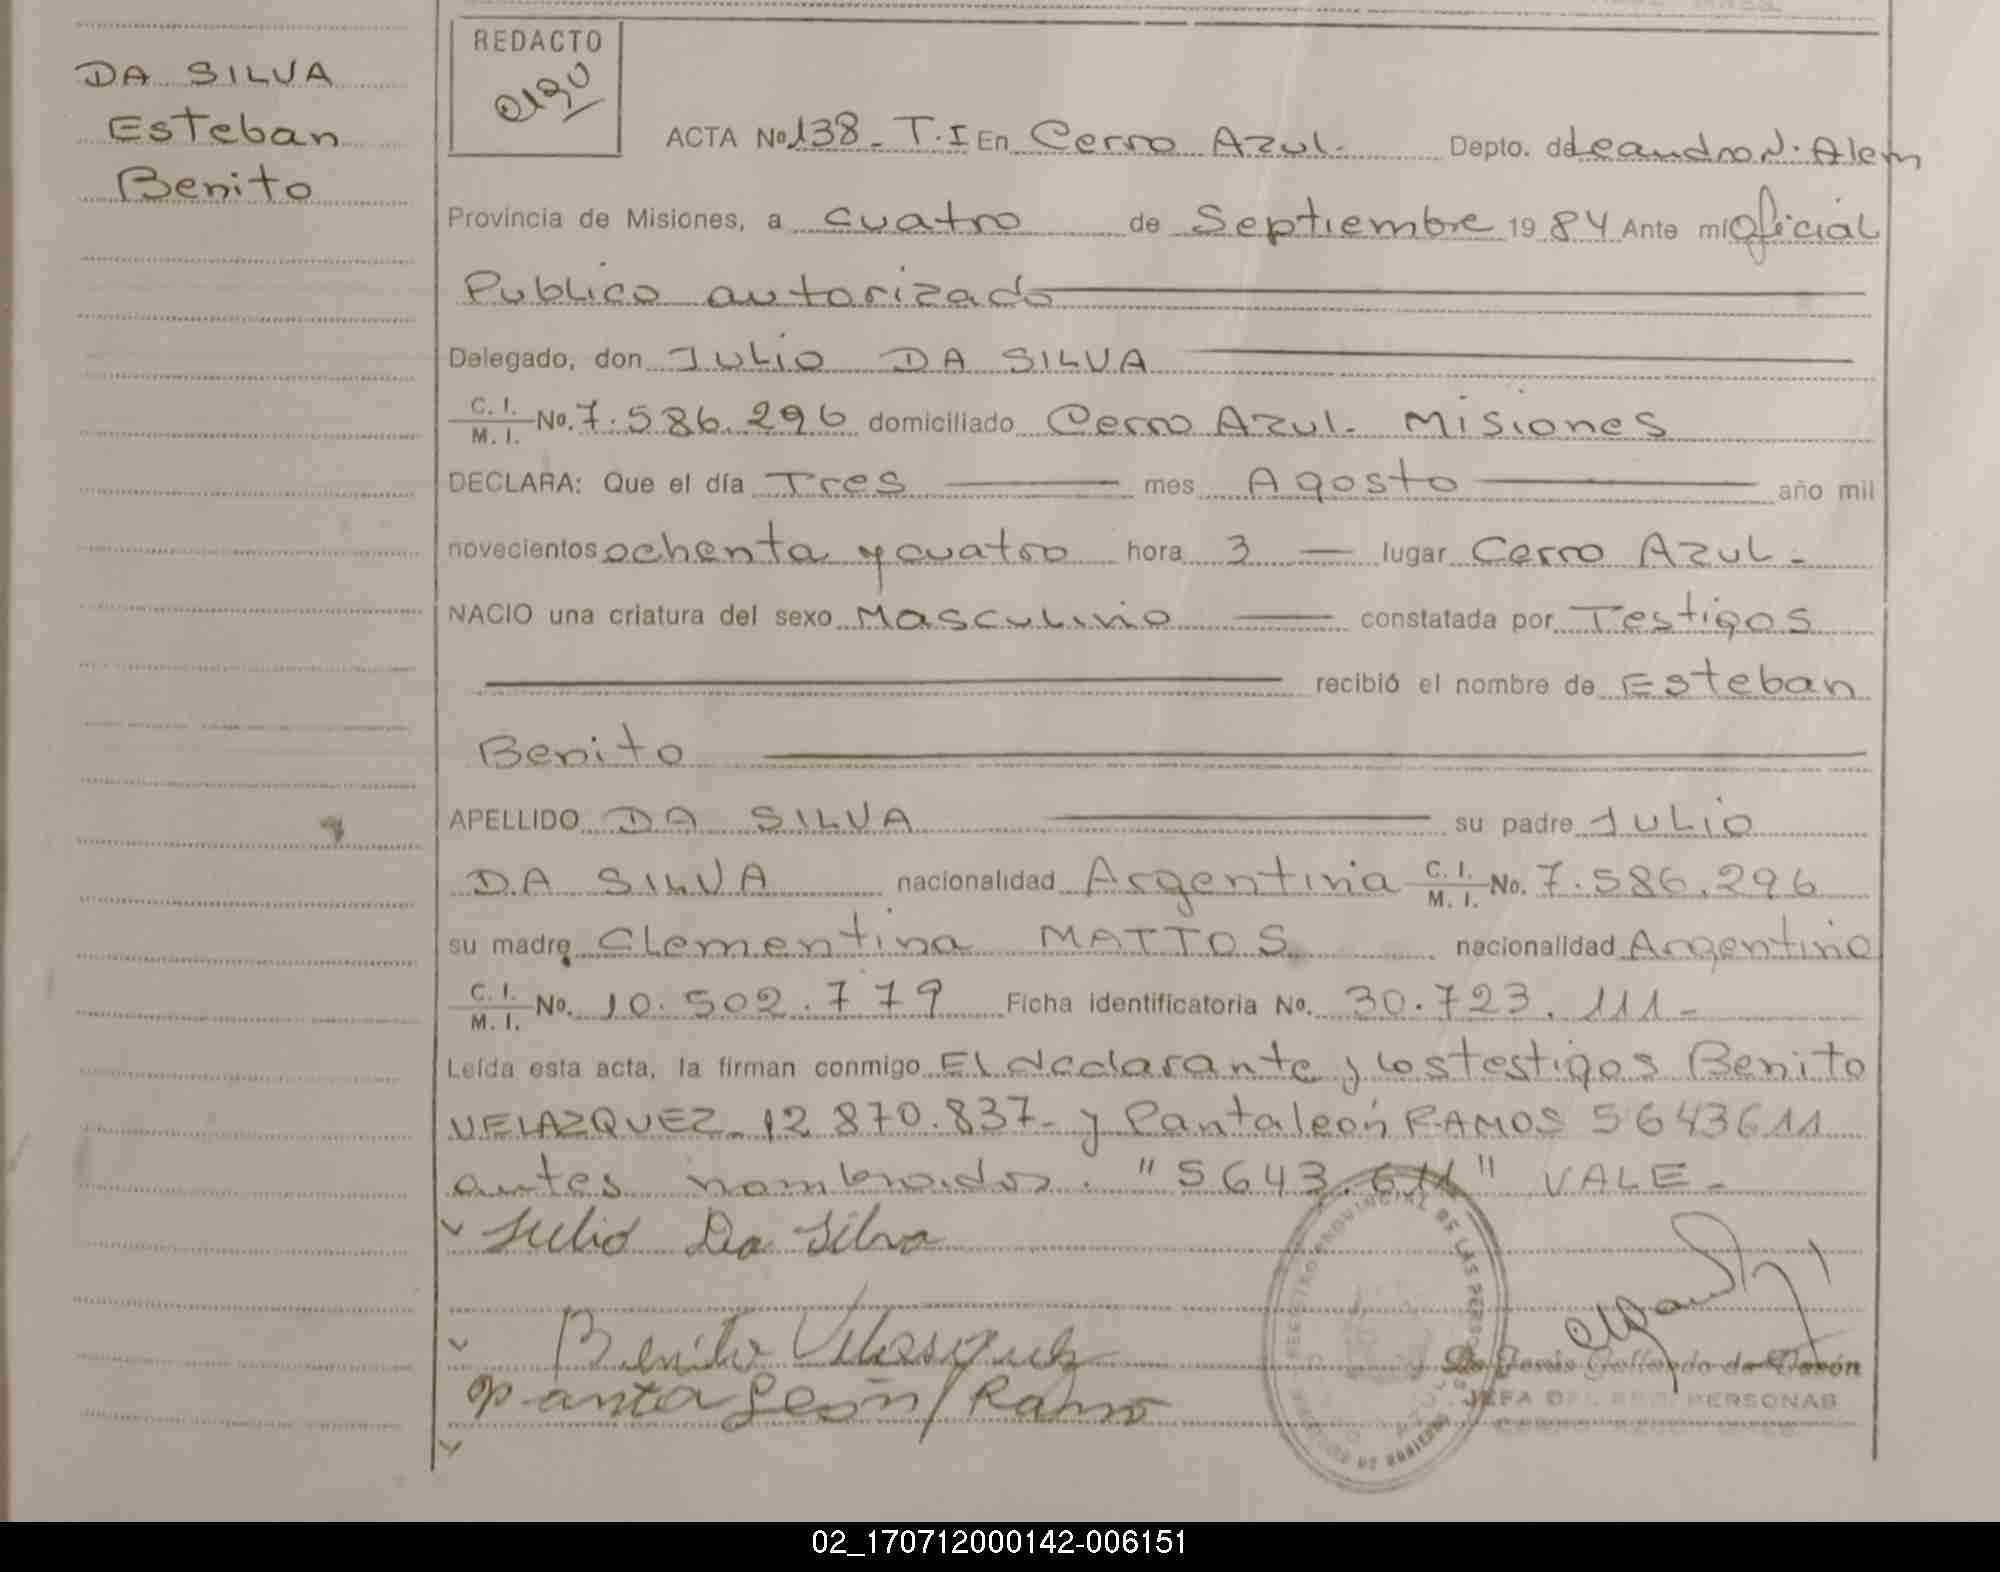 DA SILVA
Esteban
Benito
REDACTO
ACTA No 138- T.I En Cerro Azul. Depto. de Leandro N. Alem
Provincia de Misiones, a cuatro de Septiembre 1984 Ante mi Oficial
Publico autorizado
Delegado, don JULIO DA SILVA
C. I. M. I. No. 7.586.296 domiciliado Cerro Azul. Misiones
DECLARA: Que el día Tres mes Agosto año mil
novecientos ochenta y cuatro hora 3 lugar Cerro Azul -
NACIO una criatura del sexo Masculino constatada por Testigos
recibió el nombre de Esteban
Benito
APELLIDO DA SILVA su padre JULIO
DA SILVA nacionalidad Argentina C. I. M. I. No. 7.586.296
su madre Clementina MATTOS nacionalidad Argentina
C. I. M. I. No. 10.502.779 Ficha identificatoria No. 30.723.111-
Leída esta acta, la firman conmigo El declarante y los testigos Benito
VELAZQUEZ - 12 870.837- y Pantaleón RAMOS 5643611
antes nombrados. "5643.611" VALE -
Julio Da Silva
Benito Velasquez
Pantaleón Ramo
REGISTRO PROVINCIAL DE LAS PERSONAS
JEFA DEL REG. PERSONAS
02_170712000142-006151